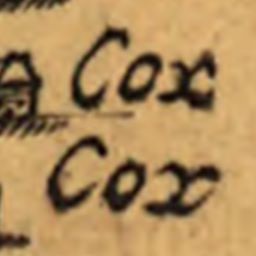 Cox
Cox